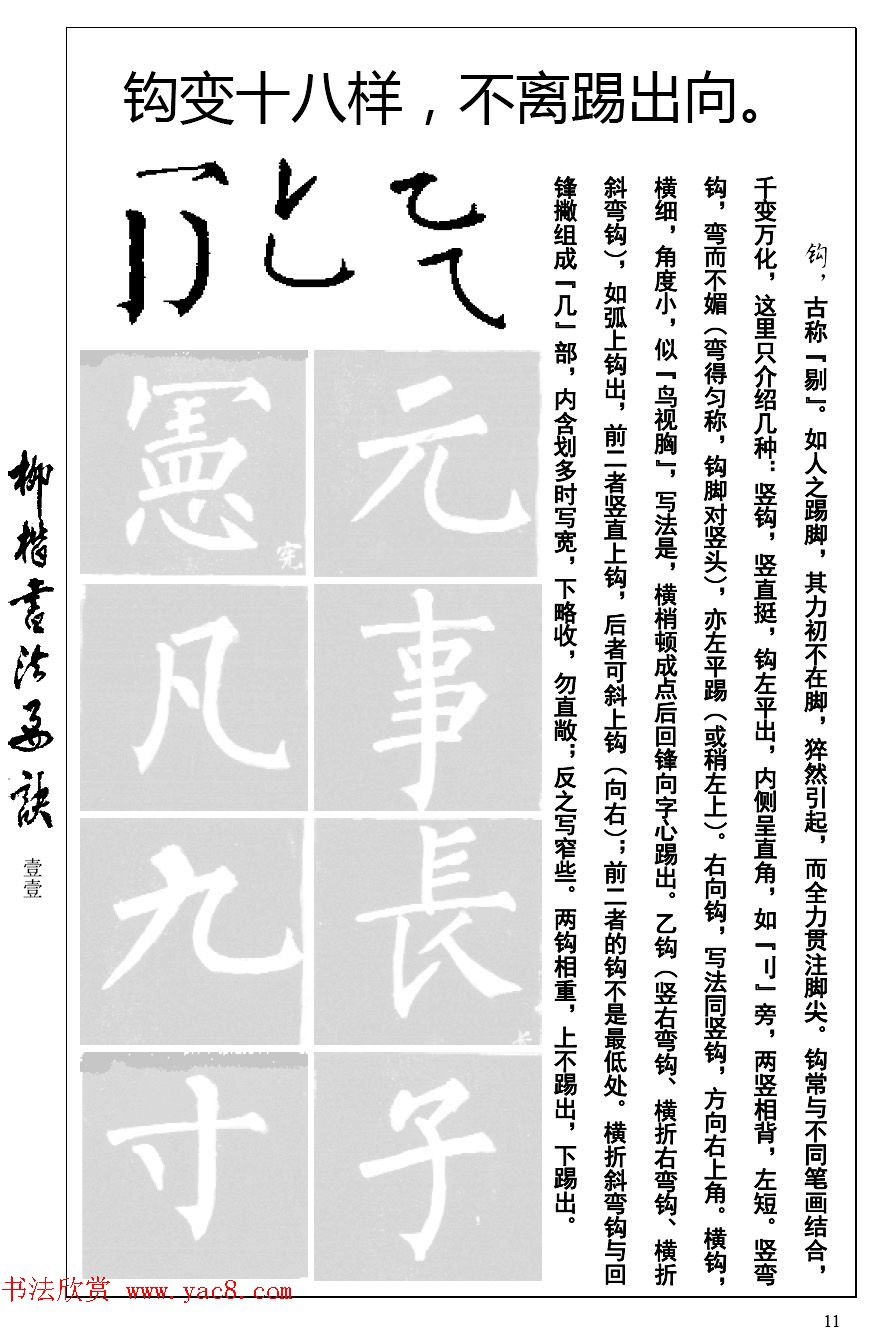 钩变十八样，不离踢出向。
钩，古称『剔』。如人之踢脚，其力初不在脚，猝然引起，而全力贯注脚尖。钩常与不同笔画结合，
千变万化，这里只介绍几种：竖钩，竖直挺，钩左平出，内侧呈直角，如『刂』旁，两竖相背，左短。竖弯
钩，弯而不媚（弯得匀称，钩脚对竖头），亦左平踢（或稍左上）。右向钩，写法同竖钩，方向右上角。横钩，
横细，角度小，似『鸟视胸』，写法是，横梢顿成点后回锋向字心踢出。乙钩（竖右弯钩、横折右弯钩、横折
斜弯钩），如弧上钩出，前二者竖直上钩，后者可斜上钩（向右）；前二者的钩不是最低处。横折斜弯钩与回
锋撇组成『几』部，内含划多时写宽，下略收，勿直敞；反之写窄些。两钩相重，上不踢出，下踢出。
元
憲
宪
事
凡
長
长
九
子
寸
柳楷書法要訣
壹壹
书法欣赏 www.yac8.com
11